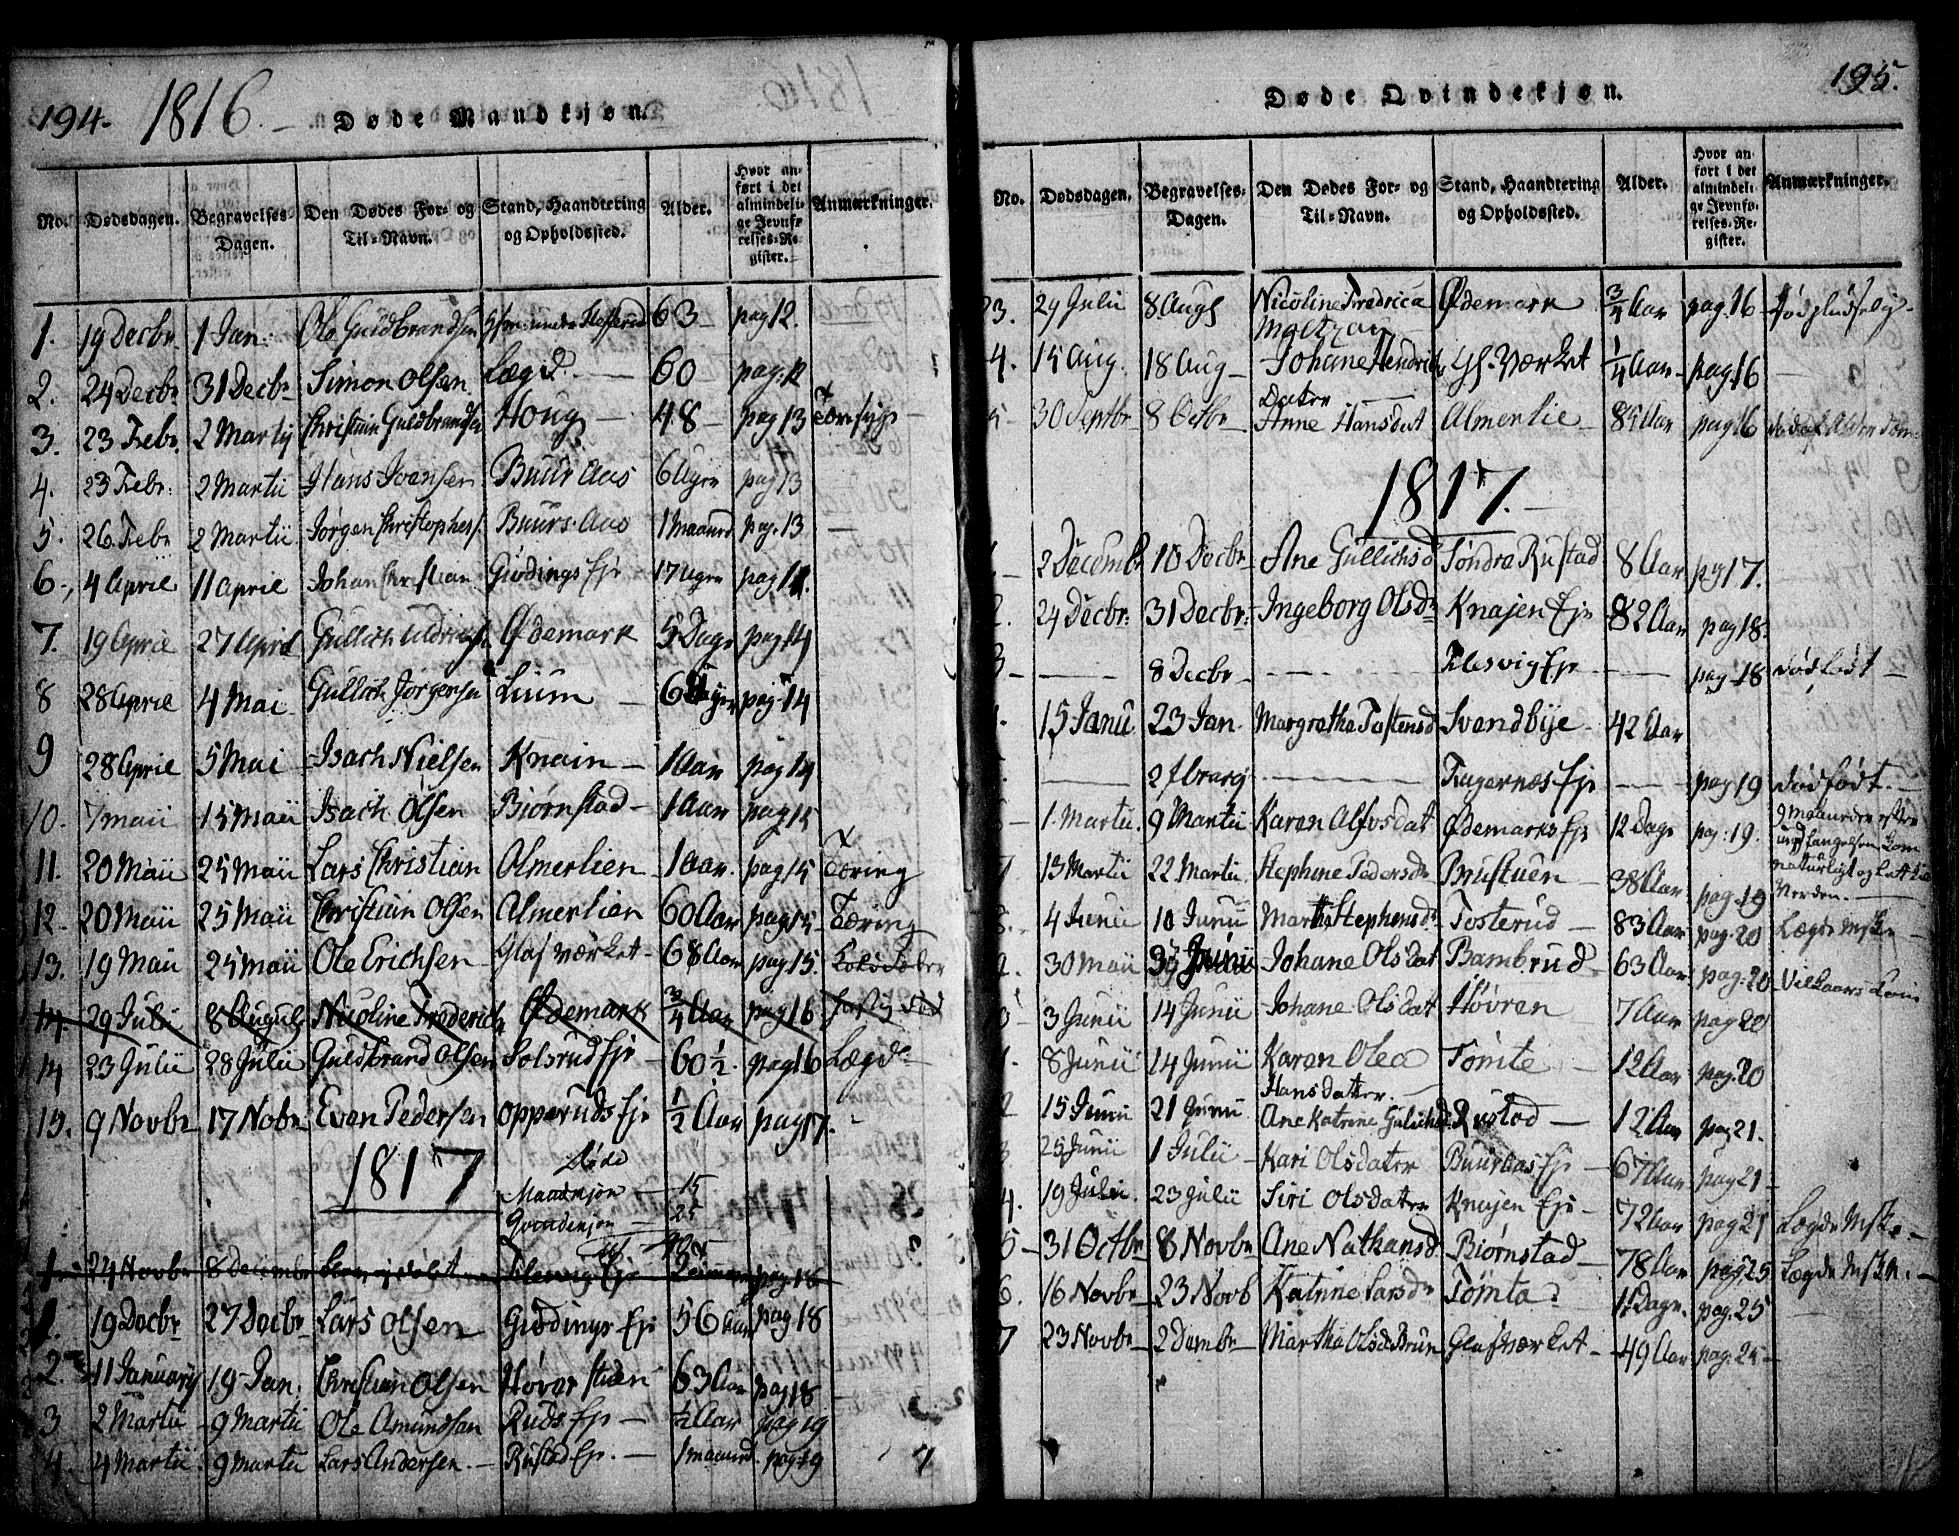 194. 1816. Døde Mandkjøn.
No. Dødsdagen. Begravelses-Dagen. Den Dødes For- og Til-Navn. Stand, Haandtering og Opholdssted. Alder. Hvor anført i det almindelige Jevnførelses-Register. Anmærkninger.
1. 19 Decbr. 1 Jan: Ole Guldbrandsen 63 pag 12.
2. 24 Decbr 31 Decbr Simon Olsen Lægd. 60 pag. 12
3. 23 Febr. 2 Martij Christian Guldbrandsen Houg 48 pag 13
4. 23 Febr: 2 Martii Hans Ivensen Buur Aas 6 Uger pag 13
5. 26. Febr 2 Martii Jørgen Christophers. Buurs Aas 1 Maaned pag. 13
6. 4 April 11 April Johan Christian Giødings Eje 17 Uger pag 14.
7. 19 April 27 April Gullich Ødemark 5 Dage pag 14
8 28 April 4 Mai Gullich Jørgensen Lium 6 Uger pag. 14
9 28 April 5 Mai Isach Nielsen Knain 1 Aar pag 14
10. 7 Maii 15 Maii Isach Olsen Biørnstad 1 Aar pag 15
11. 20 Maii 25 Maii Lars Christian Almerlien 1 Aar. pag 15 Tæring
12. 20 Maii 25 Maii Christian Olsen Almerlien 60 Aar pag 15 Tæring
13. 19 Maii 25 Maii Ole Erichsen Glasværket 68 Aar pag 15.
14. 29 Juli 8 August Nicoline Frederica Ødemark 3/4 Aar pag 16 hastig død
14 23 Julii 28 Julii Guldbrand Olsen Solsrud Eje 60 1/2. pag 16 Lægd
15. 9 Novbr 17 Nobr Even Pedersen Opperuds Eje 1/2 Aar pag 17.
1817
Døde
Mandkjøn 15
Qvindekjøn 25
1. 24 Novbr 8 Decembr Flesvig Eje pag 18
1. 19 Decbr 27 Decbr Lars Olsen Giødings Eje 56 Aar pag 18
2. 11 January 19 Jan. Christian Olsen 63 Aar pag 18
3 2 Martii 9 Martii Ole Amundsen Ruds Eje 1/2 Aar pag 19
4. 4 Martii 9 Martii Lars Andersen. Rustad Eje. 1 Maaned pag. 19
Døde Qvindekjøn. 195.
No. Dødsdagen. Begravelses-Dagen. Den Dødes For- og Til-Navn. Stand, Haandtering og Opholdssted. Alder. Hvor anført i det almindelige Jevnførelses-Register. Anmærkninger.
23. 29 Julii 8 Augs Nicoline Fredrica Ødemark 3/4 Aar pag. 16 død pludselig.
Moltzau
4. 15 Aug. 18 Aug Johane Hendrichs Gl. Værket 1/4 Aar pag 16
Datter
5 30 Septbr 8 Octbr Anne Hansdat Almerlie 85 Aar pag 16
1817.
1 2 Decembr 10 Decbr Ane Gullichsd Søndre Rustad 8 Aar pag 17.
2. 24 Decbr: 31 Decbr: Ingeborg Olsdr Knajen Eje 82 Aar pag 18.
3 8 Decbr Flesvig Eje pag. 18 Dødfødt
4. 15 Janu. 23 Jan. Margretha Tostensd Svendbye 42 Aar
2 Fbrarj Tagernæs Eje pag 19 Dødfødt.
1. Martii. 9 Martii Karen Alfvsdat Ødemarks Eje 12 Dage pag. 19.
9 Maaneder efter
undfangelsen kom
naturligt og let til
Verden.
7 13 Martii 22 Martii. Stephine Pedersdr Brustuen 38 Aar pag 19
8. 4 Junii 10 Junii Martha Stephensdr Tosterud 83 Aar pag. 20 Lægdemske
9. 30 Maii Junii Johane Olsdat Bambrud 63 Aar pag. 20 Vilkaars Kone
10 3 Junii 14 Junii Johane Olsdat Høvren 7 Aar pag 20
1. 8 Junii 14 Junii Karen Olea Tømte 12 Aar pag. 20
Hansdatter.
2 15 Junii 21 Junii Ane Katrine Gulichsd Rustad 12 Aar pag 21.
3 25 Junii 1 Julii Kari Olsdatter Buuraas Eje 67 Aar pag 21
4. 19 Julii. 23 Julii Siri Olsdatter Knajen Eje 72 Aar pag 21 Lægdemske
5 31 Octbr 8 Novbr Ane Nathansd Biørnstad 78 Aar pag 25 Lægdemskr.
6. 16 Novbr 23 Novb Katrine Larsdr Tømta 17 Dage. pag. 25
7 23 Novbr 2 Dcembr Martha Olsdr Brun Glasværket 49 Aar pag. 25